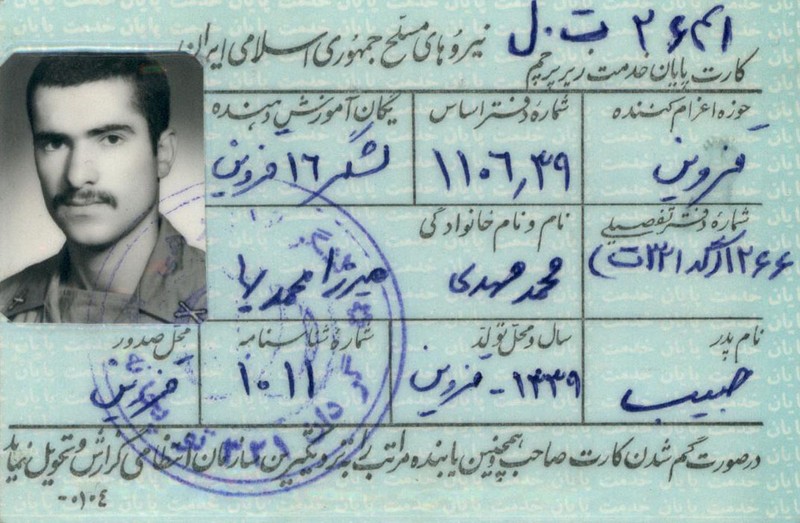 نیروهای مسلح جمهوری اسلامی ایران
کارت پایان خدمت زیر پرچم
حوزه اعزام کننده
شماره دفتر اساس
یگان آموزش دهنده
قزوین
۱۱۰۶٫۳۹
لشگر ۱۶ قزوین
شماره دفتر تفصیلی
نام و نام خانوادگی
محمد مهدی
میرزا محمد
نام پدر
سال و محل تولد
شماره شناسنامه
محل صدور
حبیب
۱۳۳۹ - قزوین
۱۰۱۱
قزوین
درصورت گم شدن کارت صاحب و همچنین یابنده مراتب را به نزدیکترین سازمان انتظامی گزارش و تحویل نماید